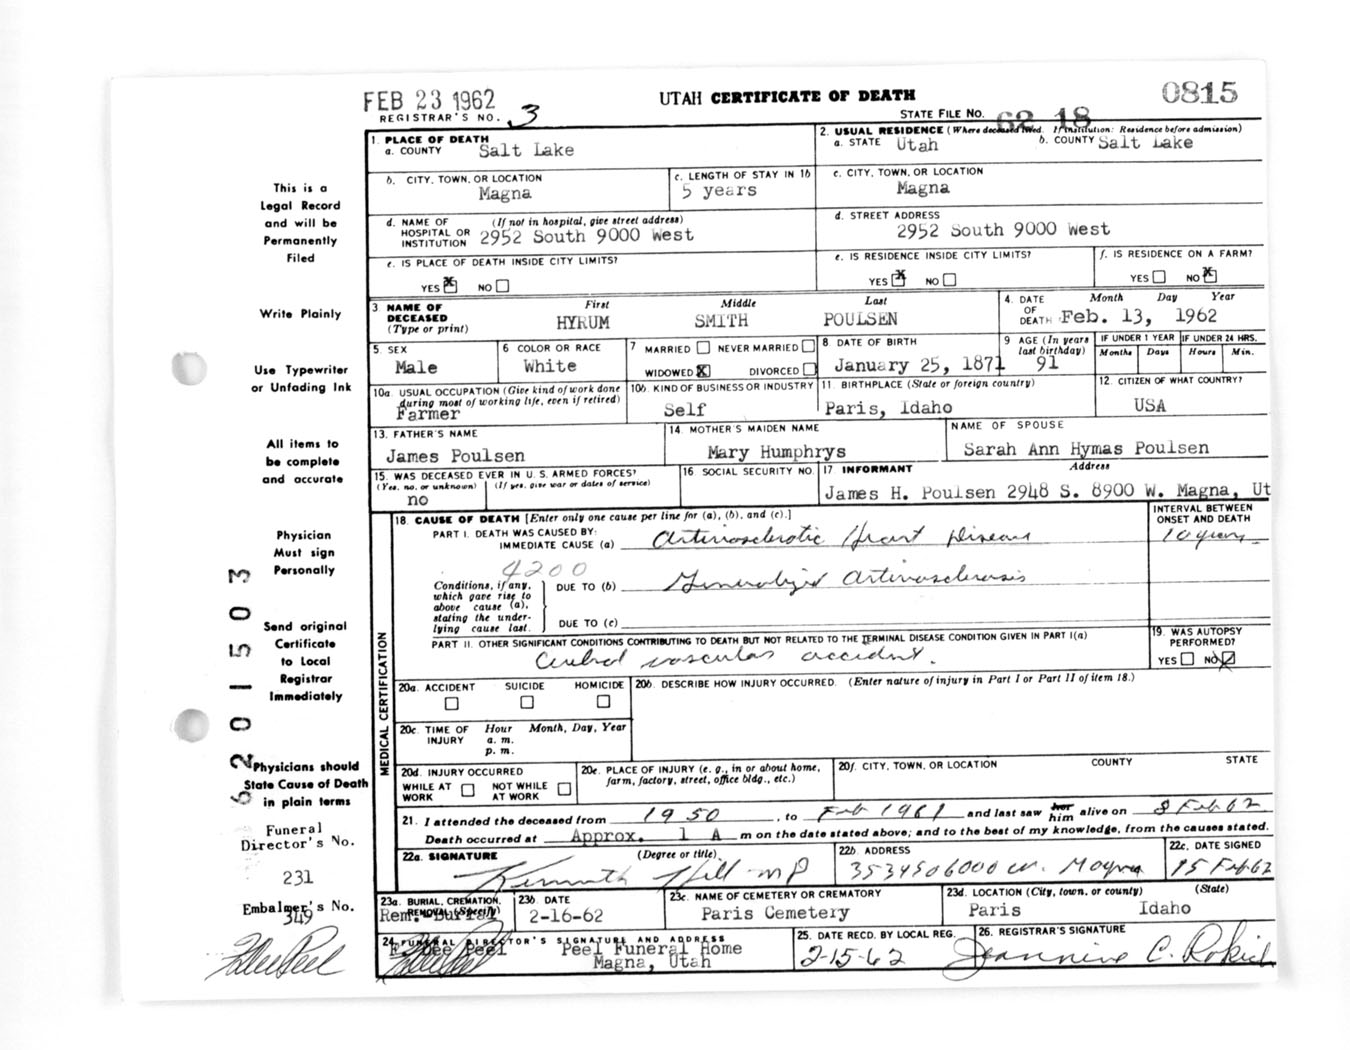 FEB 23 1962
UTAH CERTIFICATE OF DEATH
0815
REGISTRAR'S NO. 3
STATE FILE NO. 62 18
1. PLACE OF DEATH
a. COUNTY Salt Lake
2. USUAL RESIDENCE (Where deceased lived. If institution: Residence before admission)
a. STATE Utah b. COUNTY Salt Lake
b. CITY, TOWN, OR LOCATION
Magna
c. LENGTH OF STAY IN 1b
5 years
c. CITY, TOWN, OR LOCATION
Magna
d. NAME OF HOSPITAL OR INSTITUTION (If not in hospital, give street address)
2952 South 9000 West
d. STREET ADDRESS
2952 South 9000 West
e. IS PLACE OF DEATH INSIDE CITY LIMITS?
YES X NO
e. IS RESIDENCE INSIDE CITY LIMITS?
YES X NO
f. IS RESIDENCE ON A FARM?
YES NO X
3 NAME OF DECEASED (Type or print)
First Middle Last
HYRUM SMITH POULSEN
4. DATE OF DEATH Month Day Year
Feb. 13, 1962
5. SEX
Male
6 COLOR OR RACE
White
7 MARRIED NEVER MARRIED
WIDOWED X DIVORCED
8 DATE OF BIRTH
January 25, 1871
9 AGE (In years last birthday)
91
IF UNDER 1 YEAR
Months Days
IF UNDER 24 HRS.
Hours Min.
10a. USUAL OCCUPATION (Give kind of work done during most of working life, even if retired)
Farmer
10b. KIND OF BUSINESS OR INDUSTRY
Self
11. BIRTHPLACE (State or foreign country)
Paris, Idaho
12. CITIZEN OF WHAT COUNTRY?
USA
13. FATHER'S NAME
James Poulsen
14. MOTHER'S MAIDEN NAME
Mary Humphrys
NAME OF SPOUSE
Sarah Ann Hymas Poulsen
15. WAS DECEASED EVER IN U. S. ARMED FORCES?
(Yes, no, or unknown) (If yes, give war or dates of service)
no
16. SOCIAL SECURITY NO.
17. INFORMANT Address
James H. Poulsen 2948 S. 8900 W. Magna, Ut
18. CAUSE OF DEATH [Enter only one cause per line for (a), (b), and (c).]
INTERVAL BETWEEN ONSET AND DEATH
PART I. DEATH WAS CAUSED BY:
IMMEDIATE CAUSE (a) Arteriosclerotic Heart Disease
10 years
4200
Conditions, if any, which gave rise to above cause (a), stating the underlying cause last.
DUE TO (b) Generalized Arteriosclerosis
DUE TO (c)
PART II. OTHER SIGNIFICANT CONDITIONS CONTRIBUTING TO DEATH BUT NOT RELATED TO THE TERMINAL DISEASE CONDITION GIVEN IN PART I(a)
Cerebral vascular accident.
19. WAS AUTOPSY PERFORMED?
YES NO X
MEDICAL CERTIFICATION
20a. ACCIDENT SUICIDE HOMICIDE
20b. DESCRIBE HOW INJURY OCCURRED. (Enter nature of injury in Part I or Part II of item 18.)
20c. TIME OF INJURY Hour Month, Day, Year
a. m.
p. m.
20d. INJURY OCCURRED
WHILE AT WORK NOT WHILE AT WORK
20e. PLACE OF INJURY (e. g., in or about home, farm, factory, street, office bldg., etc.)
20f. CITY, TOWN, OR LOCATION COUNTY STATE
21. I attended the deceased from 1950, to Feb 1961 and last saw her him alive on 8 Feb 62
Death occurred at Approx. 1 A m on the date stated above; and to the best of my knowledge, from the causes stated.
22a. SIGNATURE (Degree or title)
Kenneth Hill MD
22b. ADDRESS
22c. DATE SIGNED
15 Feb 62
23a. BURIAL, CREMATION, REMOVAL (Specify)
Rem.-Burial
23b DATE
2-16-62
23c. NAME OF CEMETERY OR CREMATORY
Paris Cemetery
23d. LOCATION (City, town, or county) (State)
Paris Idaho
24 FUNERAL DIRECTOR'S SIGNATURE AND ADDRESS
Peel Peel Funeral Home
Magna, Utah
25. DATE RECD. BY LOCAL REG.
2-15-62
26. REGISTRAR'S SIGNATURE
Jeannine C.
This is a
Legal Record
and will be
Permanently
Filed
Write Plainly
Use Typewriter
or Unfading Ink
All items to
be complete
and accurate
Physician
Must sign
Personally
Send original
Certificate
to Local
Registrar
Immediately
Physicians should
State Cause of Death
in plain terms
Funeral
Director's No.
231
Embalmer's No.
349
62 01503